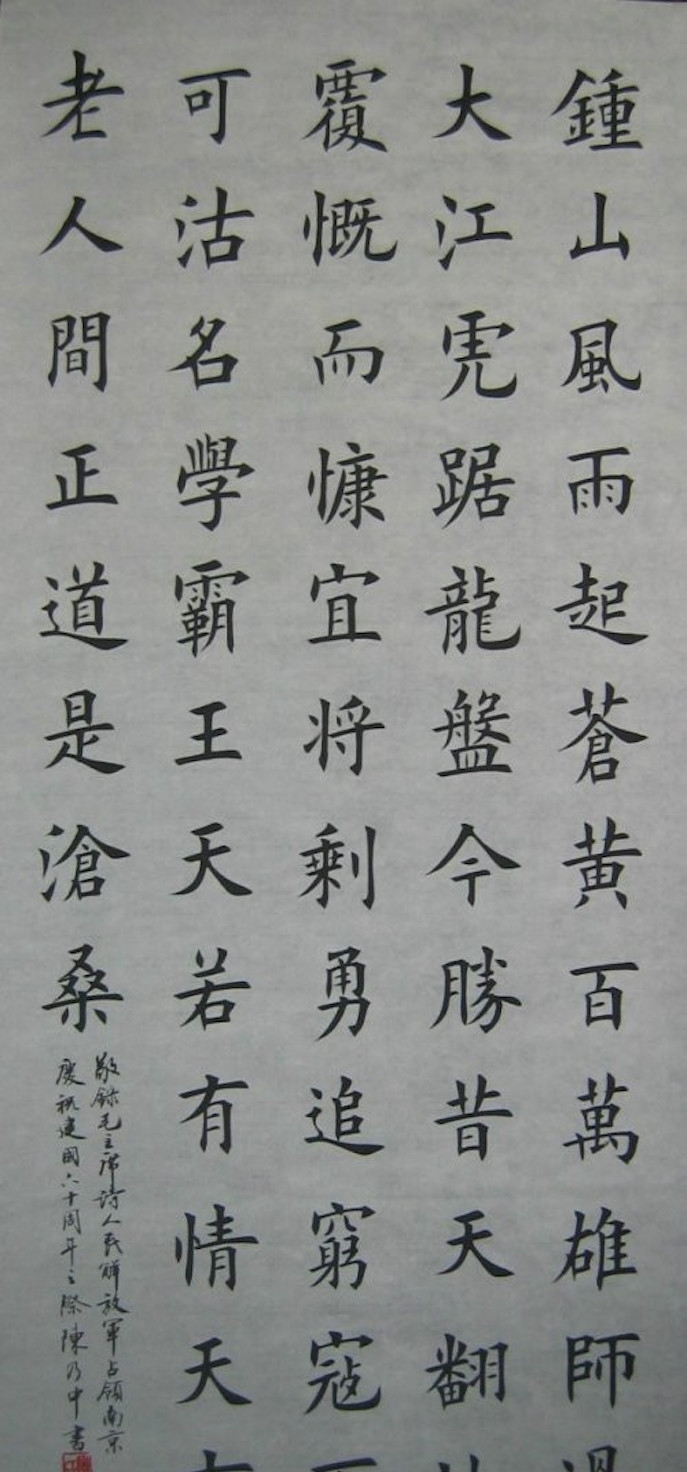 鍾山風雨起蒼黃百萬雄師過
大江虎踞龍盤今勝昔天翻
覆慨而慷宜将剩勇追窮寇
可沽名學霸王天若有情天
老人間正道是滄桑
敬録毛主席詩人民解放軍占領南京
慶祝建國六十周年之際陳乃中書